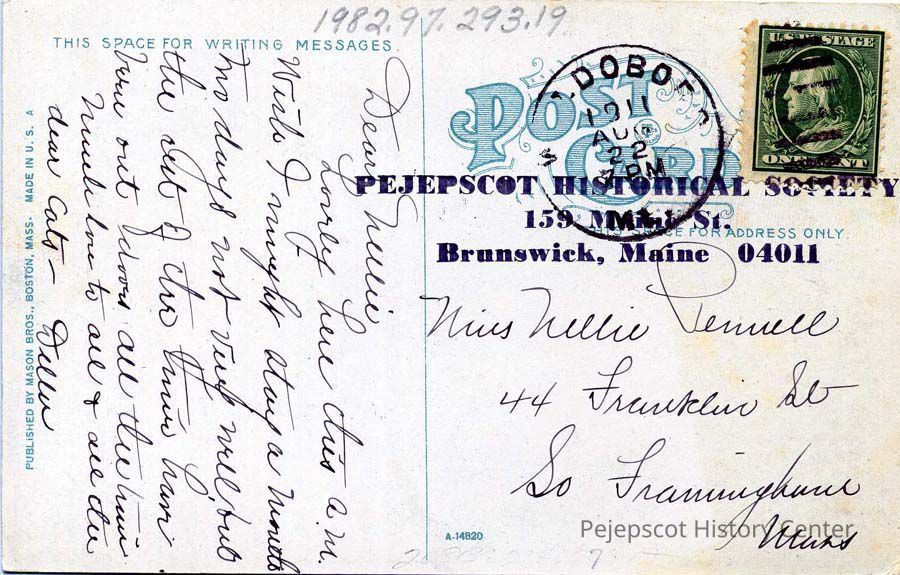 1982.97.293.19
THIS SPACE FOR WRITING MESSAGES.
Dear Nellie
Lovely here this a.m.
Wish I might stay a month
Two days not very well but
the rest of the time have
been out doors all the time
Much love to all & all the
dear cats—
PUBLISHED BY MASON BROS., BOSTON, MASS- MADE IN U. S. A
POST CARD
LDOBO
1911
AUG
22
PM
ME.
U.S. POSTAGE
ONE CENT
PEJEPSCOT HISTORICAL SOCIETY
159 St.
Brunswick, Maine 04011
SPACE FOR ADDRESS ONLY.
Miss Nellie Pennell
44 Franklin St
So Framingham
Mass
A-14820
Pejepscot History Center